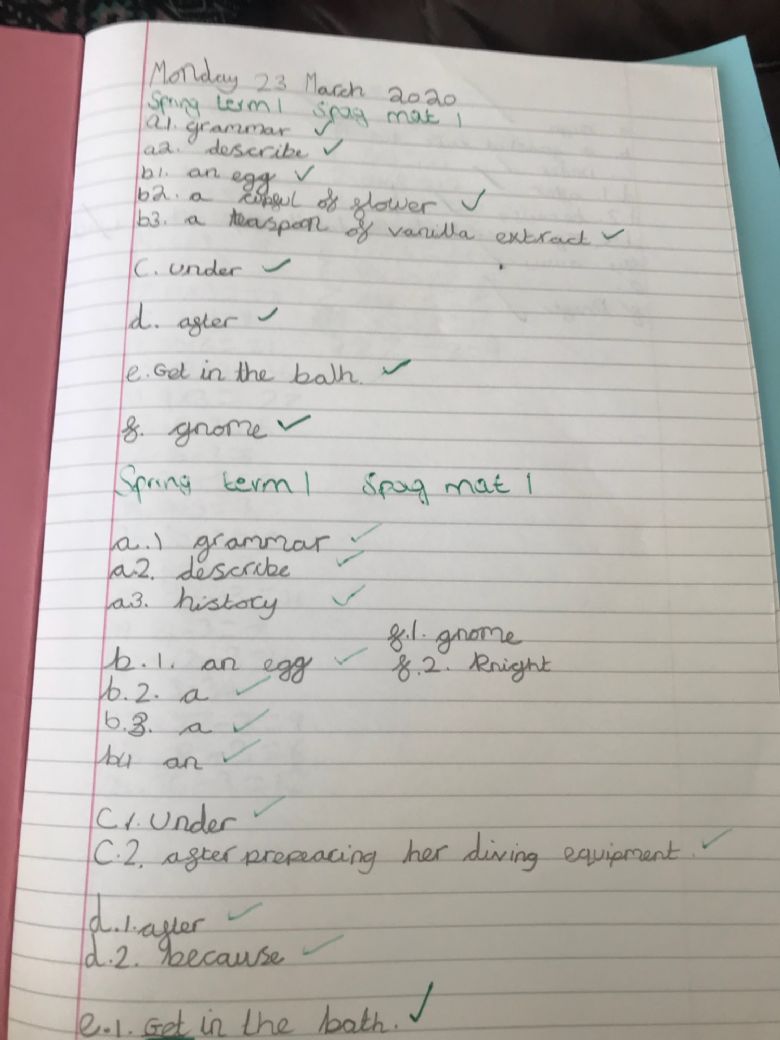 Monday 23 March 2020
Spring term 1 Spag mat 1
a1. grammar ✓
a2. describe ✓
b1. an egg ✓
b2. a cupful of flower ✓
b3. a teaspoon of vanilla extract ✓
C. under ✓
d. after ✓
e. Get in the bath. ✓
f. gnome ✓
Spring term 1 Spag mat 1
a.1 grammar ✓
a.2. describe ✓
a3. history ✓
f.1. gnome
b.1. an egg ✓ f.2. Knight
b.2. a ✓
b.3. a ✓
b4 an ✓
C1. Under ✓
C.2. after prepearing her diving equipment. ✓
d.1. after ✓
d.2. because ✓
e.1. Get in the bath. ✓